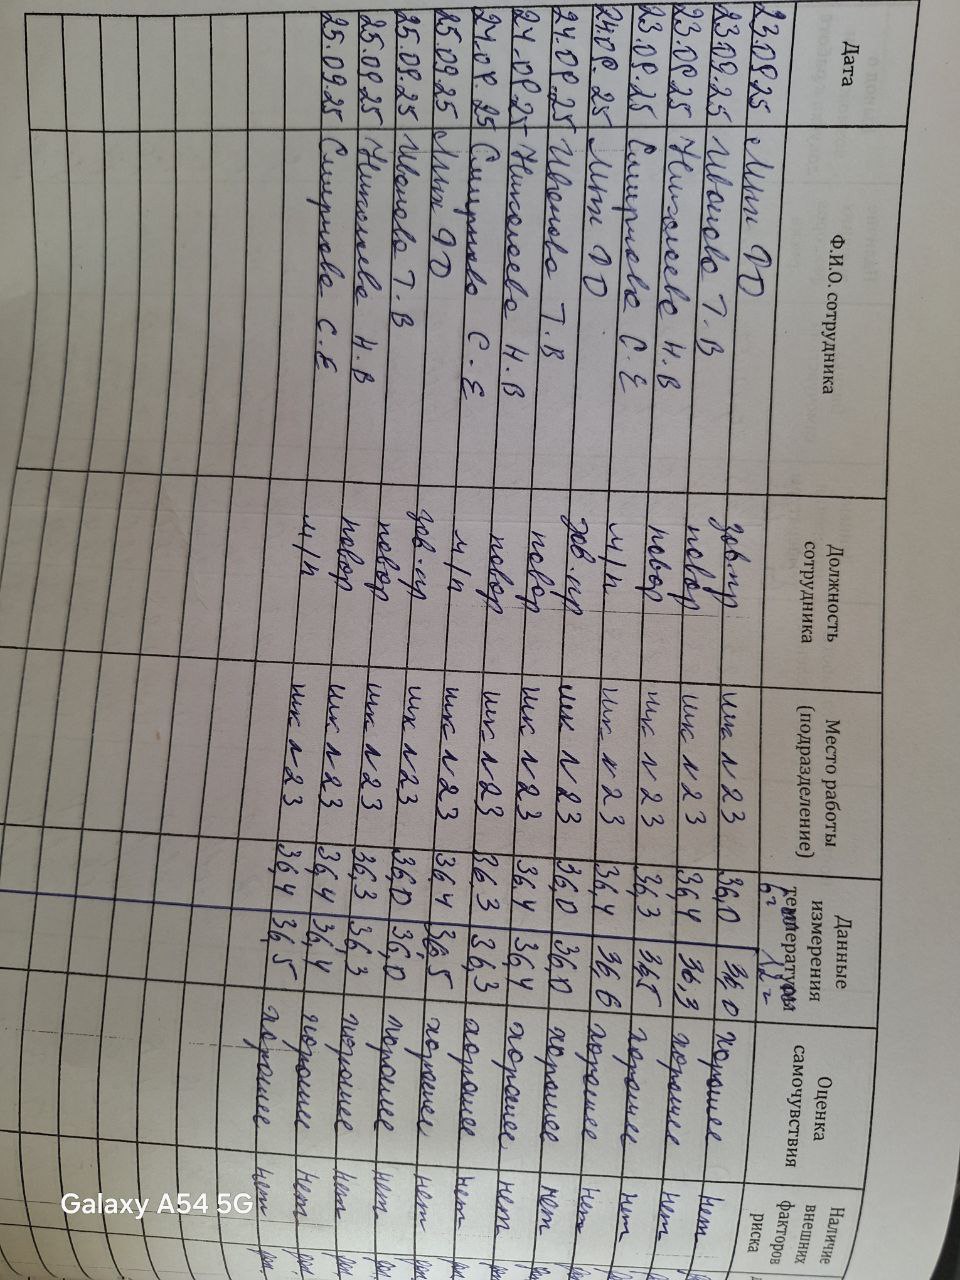 Дата Ф.И.О. сотрудника Должность сотрудника Место работы (подразделение) Данные измерения температуры Оценка самочувствия Наличие внешних факторов риска
23.09.25 Мин зав.пр шк N 23 36,0 36,0 хорошее нет
23.09.25 Иванова Т.В повар шк N 23 36,4 36,3 хорошее нет
23.09.25 Николаева Н.В повар шк N 23 36,3 36,5 хорошее нет
23.09.25 Смирнова С.Е м/п шк N 23 36,4 36,6 хорошее нет
24.09.25 Мин зав.пр шк N 23 36,0 36,0 хорошее нет
24.09.25 Иванова Т.В повар шк N 23 36,4 36,4 хорошее нет
24.09.25 Николаева Н.В повар шк N 23 36,3 36,3 хорошее нет
24.09.25 Смирнова С.Е м/п шк N 23 36,4 36,5 хорошее нет
25.09.25 Мин зав.пр шк N 23 36,0 36,0 хорошее нет
25.09.25 Иванова Т.В повар шк N 23 36,3 36,3 хорошее нет
25.09.25 Николаева Н.В повар шк N 23 36,4 36,4 хорошее нет
25.09.25 Смирнова С.Е м/п шк N 23 36,4 36,5 хорошее нет
Galaxy A54 5G